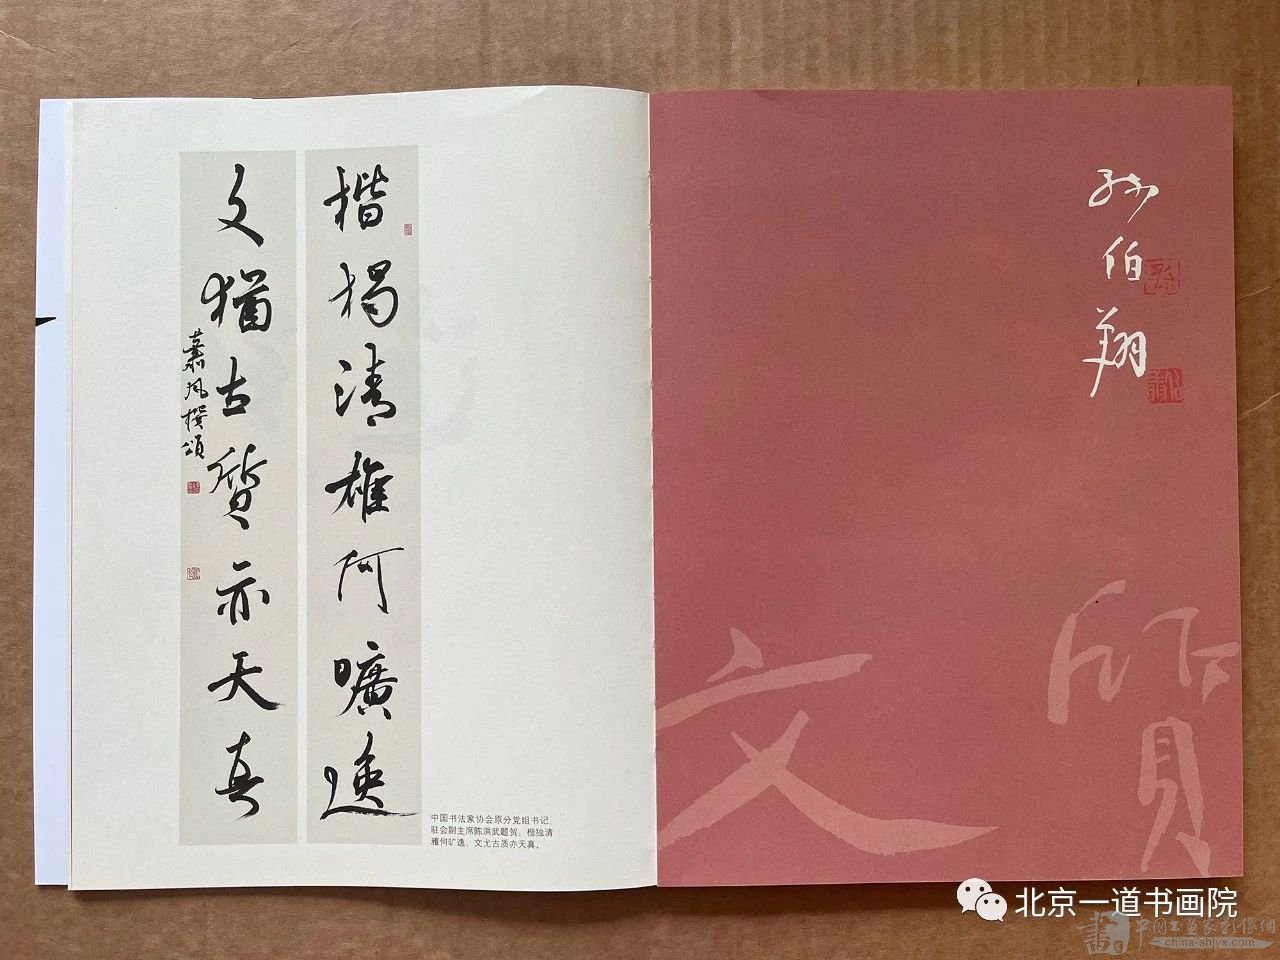 楷獨清雅何曠逸
文猶古質亦天真
撰頌
中国书法家协会原分党组书记、
驻会副主席陈洪武题贺：楷独清
雅何旷逸，文尤古质亦天真。
孙伯翔
文質
北京一道书画院
中国书画家影像网
china-shjyx.com